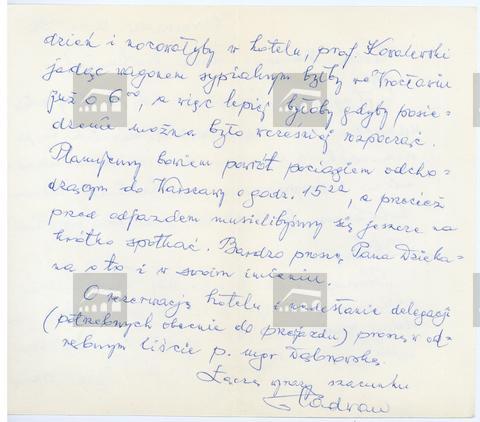 dzień i nocowałyby w hotelu, prof. Kowalewski
jadąc wagonem sypialnym byłby we Wrocławiu
już o 6⁰⁰, a więc lepiej byłoby gdyby posie-
dzenie można było wcześniej rozpocząć.
Planujemy bowiem powrót pociągiem odcho-
dzącym do Warszawy o godz. 15²², a przecież
przed odjazdem musielibyśmy się jeszcze na
krótko spotkać. Bardzo proszę Pana Dzieka-
na o to i w swoim imieniu.
O rezerwację hotelu i nadesłanie delegacji
(potrzebnych obecnie do przejazdu) proszę w od-
rębnym liście p. mgr Dąbrowską.
Łączę wyrazy szacunku